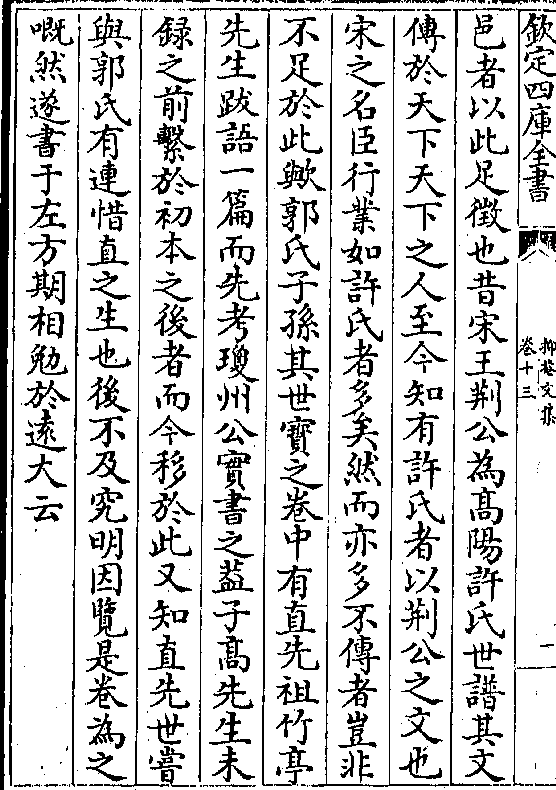 欽定四庫全書
抑菴文集
卷十三
一
邑者以此足徴也昔宋王荆公為髙陽許氏世譜其文
傳於天下天下之人至今知有許氏者以荆公之文也
宋之名臣行業如許氏者多矣然而亦多不傳者豈非
不足於此歟郭氏子孫其世寳之卷中有直先祖竹亭
先生跋語一篇而先考瓊州公實書之葢子髙先生未
録之前繫於初本之後者而今移於此又知直先世嘗
與郭氏有連惜直之生也後不及究明因覽是卷為之
嘅然遂書于左方期相勉於逺大云